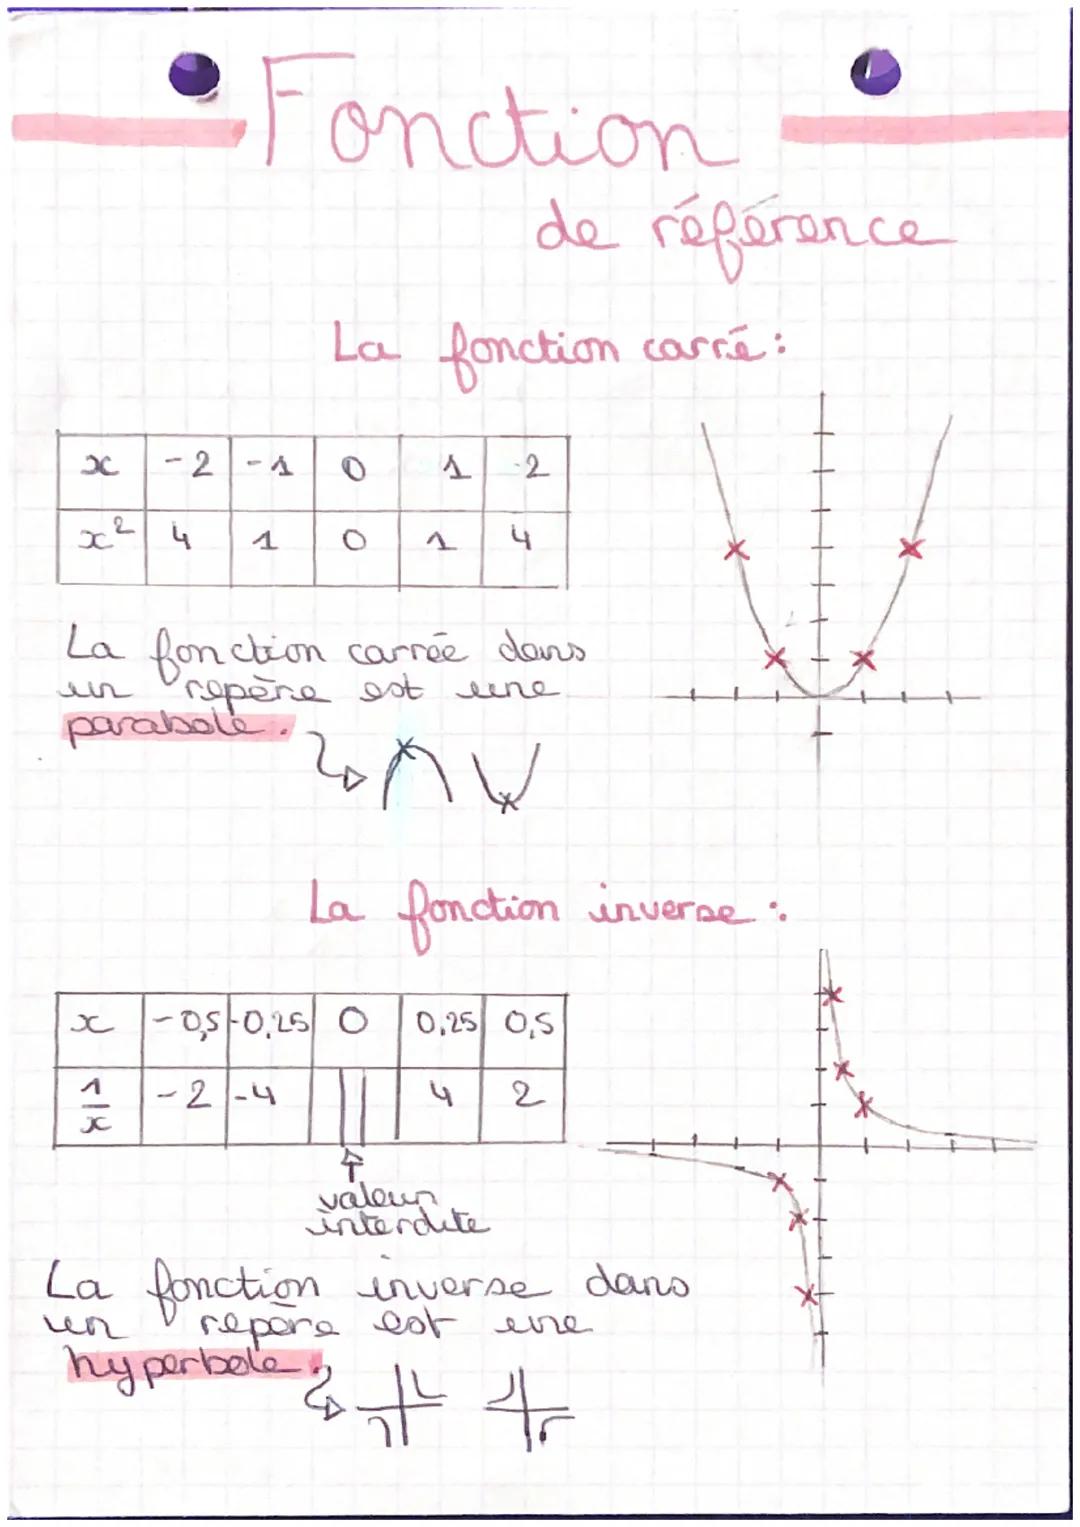 Fonction
de référence
La fonction carré :
x -2 -1 0 1 -2
x² 4 1 0 1 4
La fonction carrée dans
un repère est une
parabole.
La fonction inverse :
x -0,5 -0,25 0 0,25 0,5
1/x -2 -4 || 4 2
valeur
interdite
La fonction inverse dans
un repère est une
hyperbole.